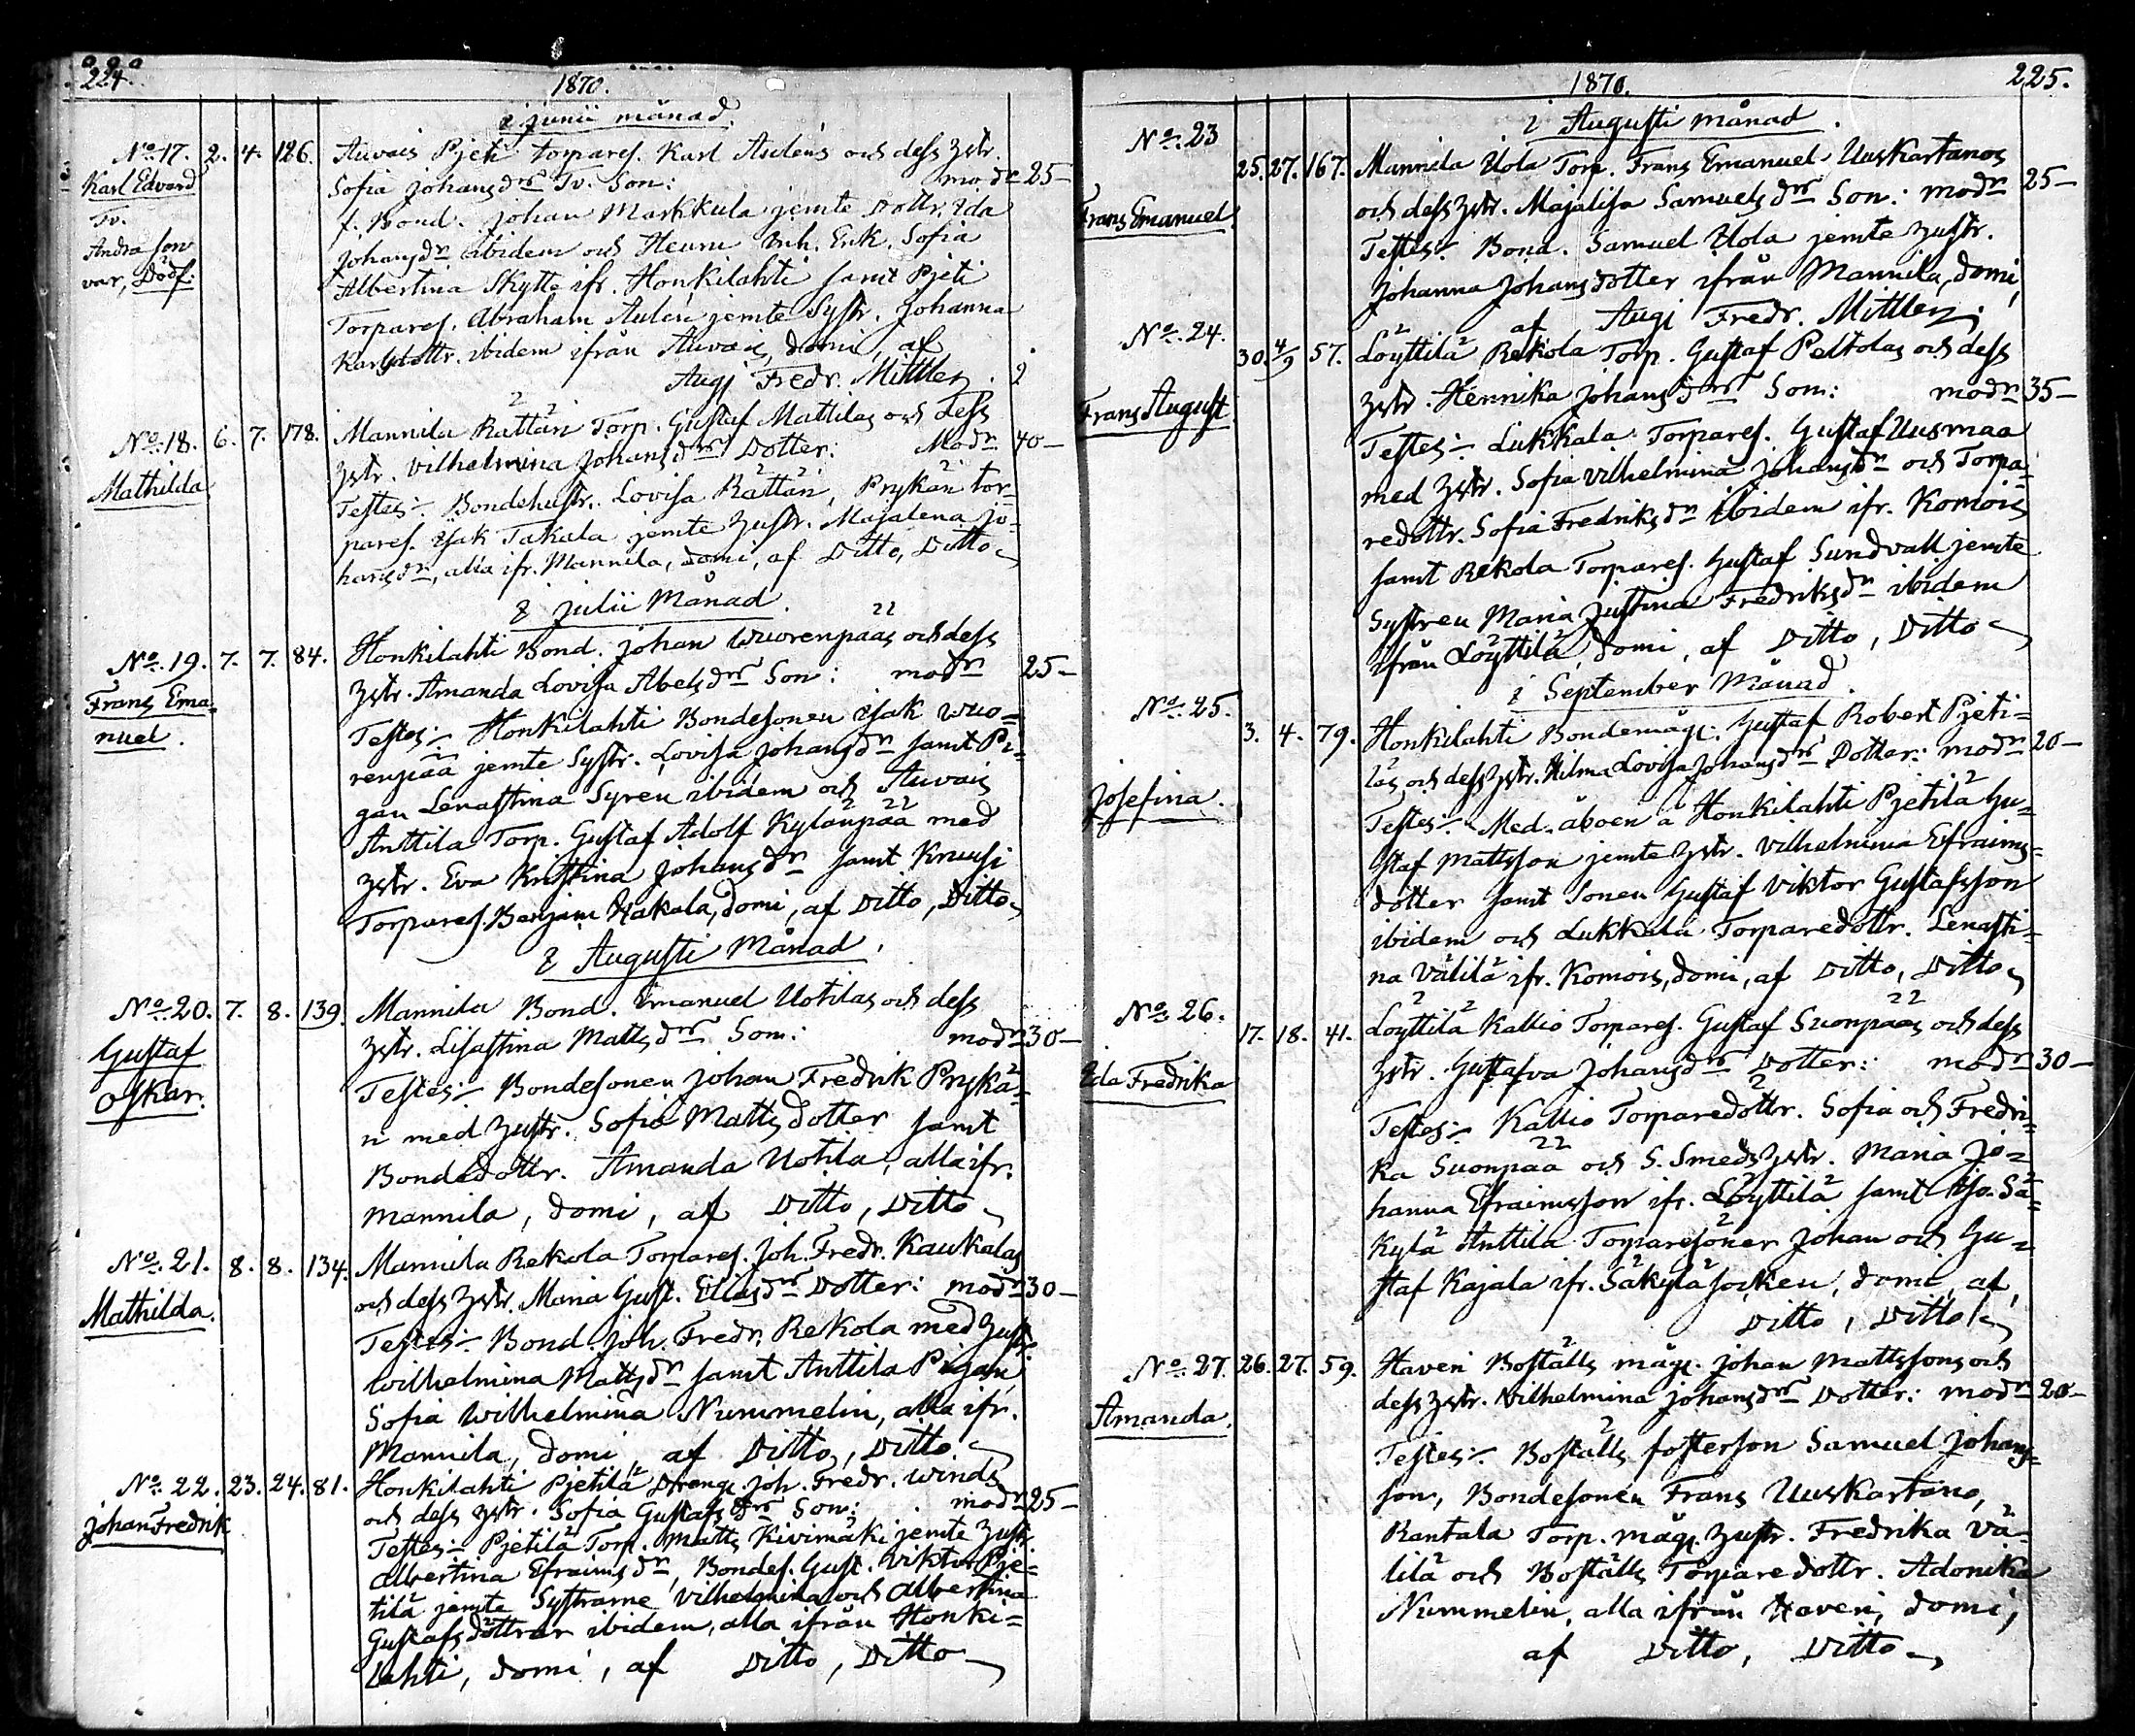 224.
1870.
i junii månad.
No 17. 2. 4. 126. Auvais Pjeti torpares. Karl Auléns och dess Hstr.
Karl Edvard
Sofia Johansdr Tv. Son: modr 25-
Tv.
Andra son
var, Dödf.
f. Bond. Johan Markkula jemte Dottr. Ida
Johansdr ibidem och Inh. Enk. Sofia
Albertina Skytte ifr. Honkilahti samt Pjeti
Torpares. Abraham Aulén jemte Systr. Johanna
Karlsdottr. ibidem ifrån Auvais, domi, af
Augj Fredr. Mittler.
No 18. 6. 7. 178. Mannila Rättäri Torp. Gustaf Mattilas och dess
Mathilda
Hstr. Vilhelmina Johansdr Dotter: Modr 40-
Testes:- Bondehustr. Lovisa Rättäri, Prykäri tor-
pares. Isak Takala jemte Hustr. Majalena Jo-
hansdr, alla ifr. Mannila, domi, af Ditto, Ditto
i Julii Månad.
No 19. 7. 7. 84. Honkilahti Bond. Johan Wuorenpääs och dess
Frans Ema-
nuel.
Hstr. Amanda Lovisa Abelsdr Son: modr 25-
Testes:- Honkilahti Bondesonen Isak Wuo=
renpää jemte Systr. Lovisa Johansdr samt Pi=
gan Lenastina Syren ibidem och Auvais
Anttila Torp. Gustaf Adolf Kylänpää med
Hstr. Eva Kristina Johansdr samt Knuusi
Torpares. Benjam Hakala, domi, af Ditto, Ditto
i Augusti Månad.
No 20. 7. 8. 139. Mannila Bond. Emanuel Uotilas och dess
Gustaf
Oskar.
Hstr. Lisastina Mattsdr Son: modr 30-
Testes:- Bondesonen Johan Fredrik Prykä-
ri med Hustr. Sofia Mattsdotter samt
Bondedottr. Amanda Uotila, alla ifr.
Mannila, domi, af Ditto, Ditto
No 21. 8. 8. 134. Mannila Rekola Torpares. Joh. Fredr. Kaukalas
Mathilda.
och dess Hstr. Maria Gust. Eliasdr Dotter: modr 30-
Testes:- Bond. Joh. Fredr. Rekola med Hustr.
Wilhelmina Mattsdr samt Anttila Pigan
Sofia Wilhelmina Nummelin, alla ifr.
Mannila, domi, af Ditto, Ditto
No 22. 23. 24. 81. Honkilahti Pjetilä Drengs Joh. Fredr. Winds
Johan Fredrik
och dess Hstr. Sofia Gustafsdr Son: modr 25-
Testes:- Pjetilä Torp. Matts Kivimäki jemte Hustr.
Albertina Efraimsdr, Bondes. Gust. Viktor Pje=
tilä jemte Systrarne Vilhelmina och Albertina
Gustafsdöttrar ibidem, alla ifrån Honki=
lahti, domi, af Ditto, Ditto
225.
1870.
i Augusti månad.
No 23
25. 27. 167. Mannila Uola Torp. Frans Emanuel Uuskartanos
Frans Emanuel
och dess Hstr. Majalisa Samuelsdr Son: modr 25-
Testes:- Bond. Samuel Uola jemte Hustr.
Johanna Johansdotter ifrån Mannila, domi,
af Augj Fredr. Mittler.
No 24.
30. 4/9 57. Löyttilä Rekola Torp. Gustaf Peltolas och dess
Frans August
Hstr. Henrika Johansdr Son: modr 35-
Testes:- Lukkala Torpares. Gustaf Uusmaa
med Hstr. Sofia Vilhelmina Johansdr och Torpa-
redottr. Sofia Fredriksdr ibidem ifr. Komois
samt Rekola Torpares. Gustaf Sundvall jemte
Systren Maria Justina Fredriksdr ibidem
ifrån Löyttilä, domi, af Ditto, Ditto
i September Månad.
No 25.
3. 4. 79. Honkilahti Bondemågs. Gustaf Robert Pjeti=
Josefina.
läs och dess Hstr. Hilma Lovisa Johansdr Dotter: modr 20-
Testes:- Med-åboen å Honkilahti Pjetilä Gu-
staf Mattsson jemte Hstr. Vilhelmina Efraims=
dotter samt Sonen Gustaf Viktor Gustafsson
ibidem och Lukkala Torparedottr. Lenasti-
na Välilä ifr. Komois, domi, af Ditto, Ditto
No 26.
17. 18. 41. Löyttilä Kallio Torpares. Gustaf Suonpääs och dess
Ida Fredrika
Hstr. Gustafva Johansdr Dotter: modr 30-
Testes:- Kallio Torparedöttr. Sofia och Fredri=
ka Suonpää och S. Smeds Hstr. Maria Jo=
hanna Efraimsson ifr. Löyttilä samt Sä=
kylä Anttila Torparesöner Johan och Gu=
staf Kajala ifr. Säkylä socken, domi, af,
Ditto, Ditto
No 27. 26. 27. 59. Haveri Boställs mågs. Johan Mattssons och
Amanda.
dess Hstr. Vilhelmina Johansdr Dotter: modr 20-
Testes:- Boställs fosterson Samuel Johans=
son, Bondesonen Frans Uuskartano,
Rantala Torp. mågs Hustr. Fredrika Vä-
lilä och Boställs Torparedottr. Adonika
Nummelin, alla ifrån Haveri, domi,
af Ditto, Ditto